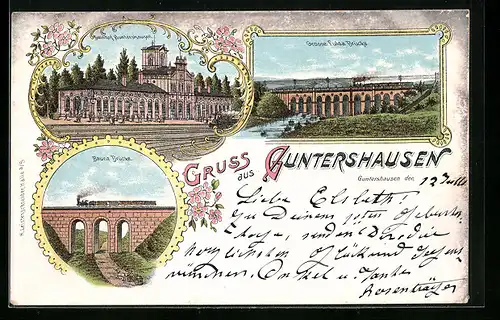 Bahnhof Guntershausen
Grosse Fulda Brücke
Bauna Brücke
GRUSS
aus
GUNTERSHAUSEN
Guntershausen den 12 Juli
Liebe Elsbeth!
Zu Deinem Geburts-
tage, senden Dir die
herzlichsten Glück und Segens
wünschen. Onkel u Tante
Rosenträger